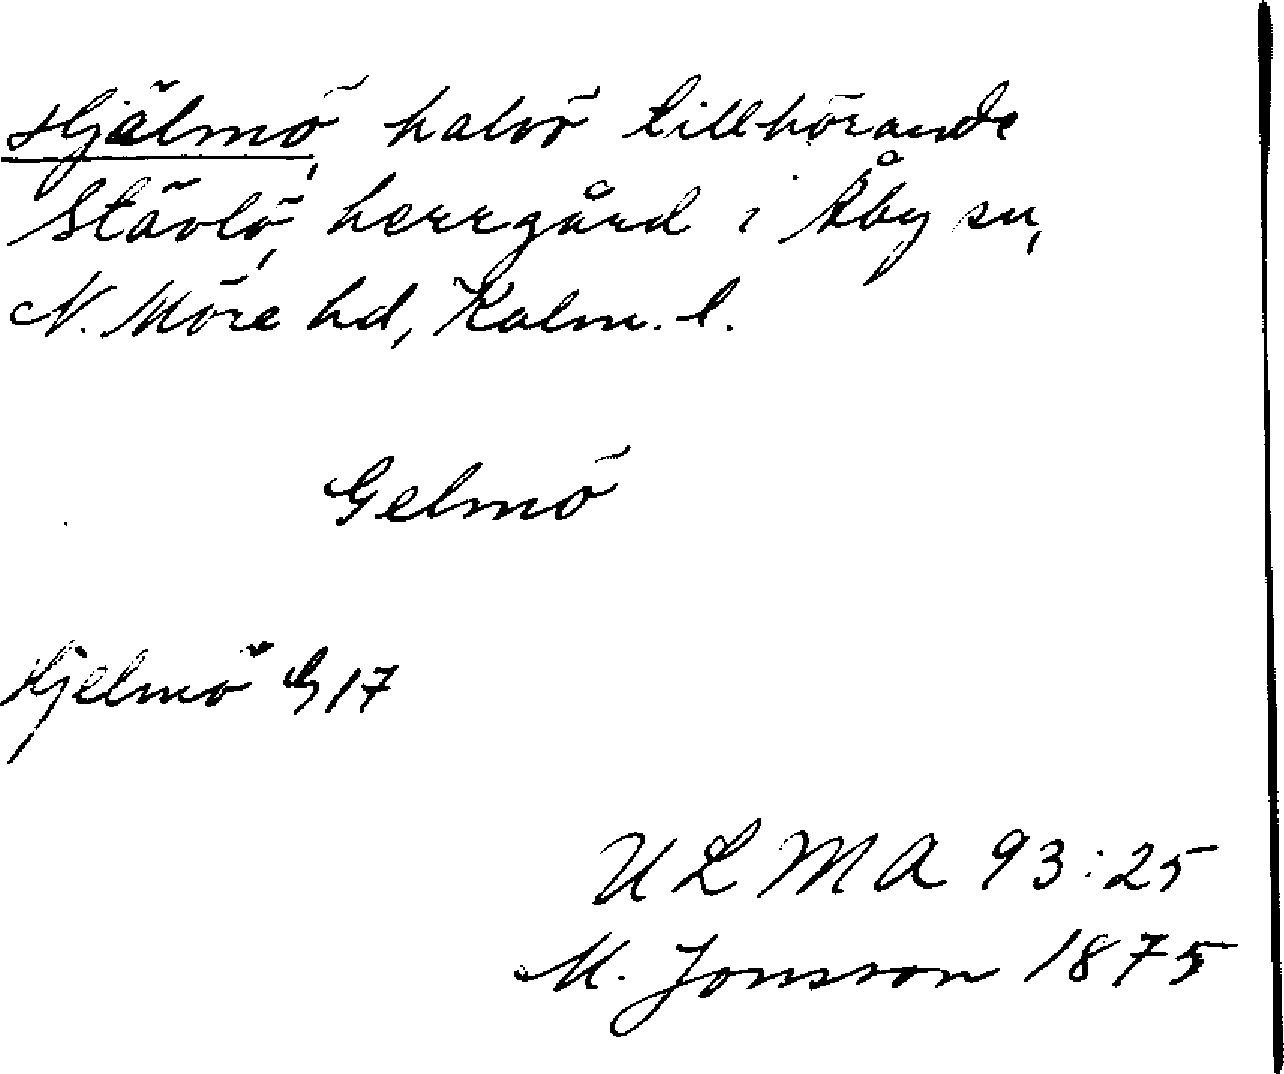 Hjälmö, halvö tillhörande
Stävlö, herrgård i Åby sn,
N. Möre hd, Kalm. l.
Gelmö
Hjelmö G 17
ULMA 93:25
M. Jonsson 1875